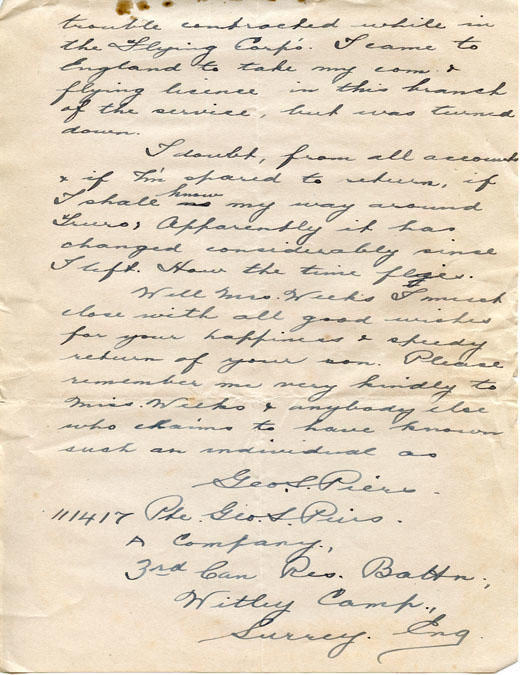 trouble contracted while in
the Flying Corp's. I came to
England to take my com. &
flying lisence in this branch
of the service, but was turned
down.
I doubt, from all accounts
& if I'm spared to return, if
I shall know my way around
Truro, Apparently it has
changed considerably sinse
I left. How the time flys.
Well Mrs. Weeks I must
close with all good wishes
for your happiness & speedy
return of your son. Please
remember me very kindly to
Miss. Weeks & anybody else
who claims to have known
such an individual as
Geo. S. Piers.
111417 Pte. Geo. S. Piers.
A Company.,
3rd Can Res. Battn.,
Witley Camp.,
Surrey. Eng.